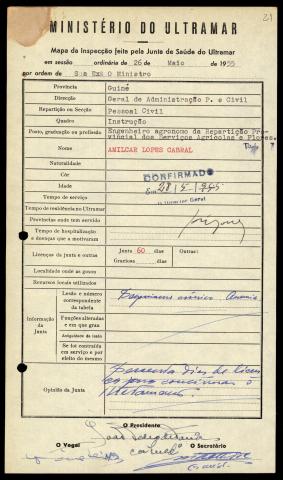 21
MINISTÉRIO DO ULTRAMAR
Mapa da Inspecção feita pela Junta de Saúde do Ultramar
em sessão ordinária de 26 de Maio de 1955
por ordem de Sua Exª O Ministro
Província Guiné
Direcção Geral de Administração P. e Civil
Repartição ou Secção Pessoal Civil
Quadro Instrução
Posto, graduação ou profissão Engenheiro agronomo da Repartição Provincial dos Serviços Agrícolas e Flores.
Nome AMILCAR LOPES CABRAL
Naturalidade
Côr CONFIRMADO
Idade Em 28/5/955
Tempo de serviço O Director Geral
Tempo de residência no Ultramar
Províncias onde tem servido
Tempo de hospitalização e doenças que a motivaram
Licenças da junta e outras Junta 60 dias Outras:
Graciosa dias
Localidade onde as gozou
Recursos locais utilizados
Informação da Junta
Lesão e número correspondente da tabela Anemia
Funções alteradas e em que grau
Antiguidade da lesão
Se foi contraída em serviço e por efeito do mesmo
Opinião da Junta Sessenta dias de licença para continuar o tratamento.
O Presidente
O Vogal
O Secretário